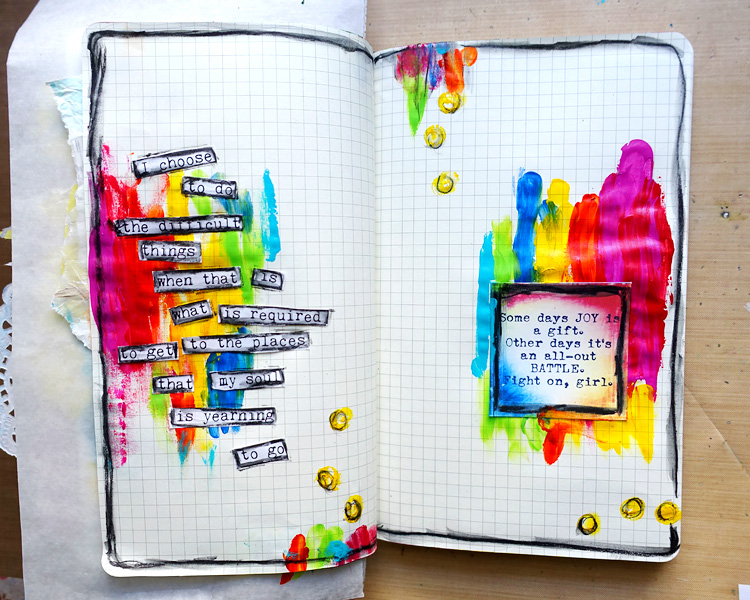 I choose
to do
the difficult
things
when that is
what is required
to get to the places
that my soul
is yearning
to go
Some days JOY is
a gift.
Other days it's
an all-out
BATTLE.
Fight on, girl.